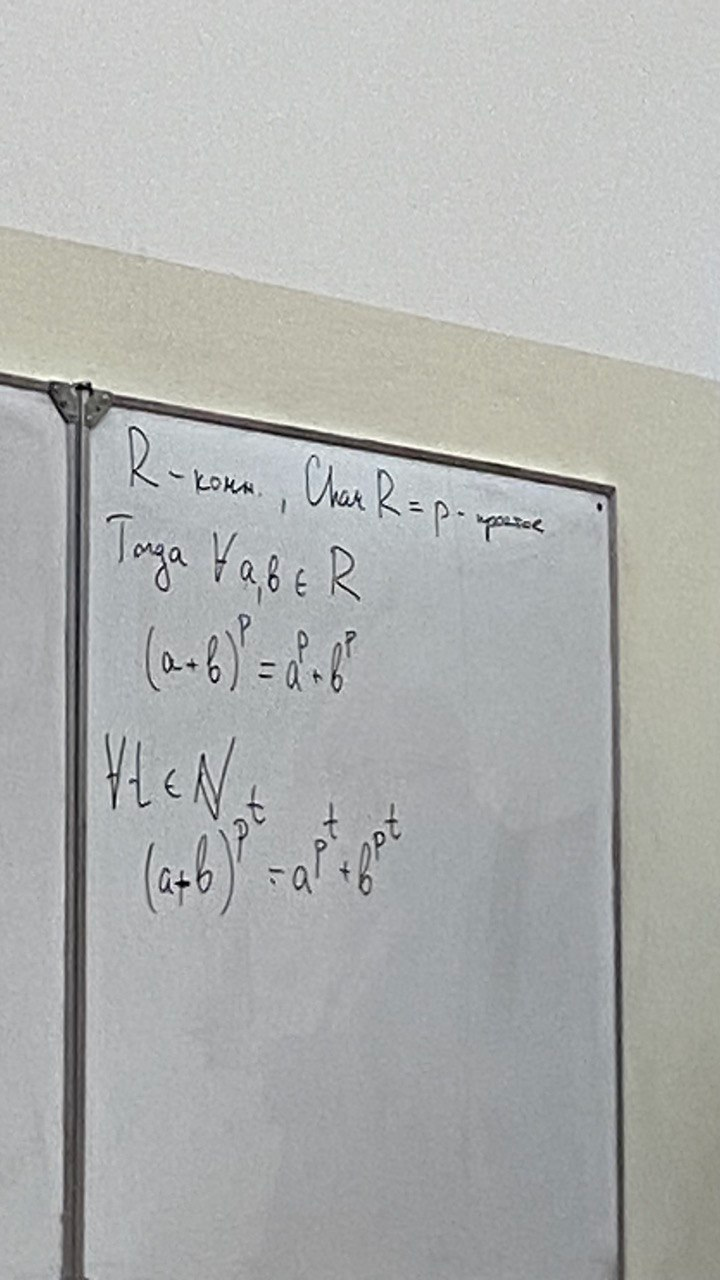 R - комм. , Char R = p - простое
Тогда ∀ a, b ∈ R
(a + b)^p = a^p + b^p
∀ t ∈ N
(a + b)^{p^t} = a^{p^t} + b^{p^t}